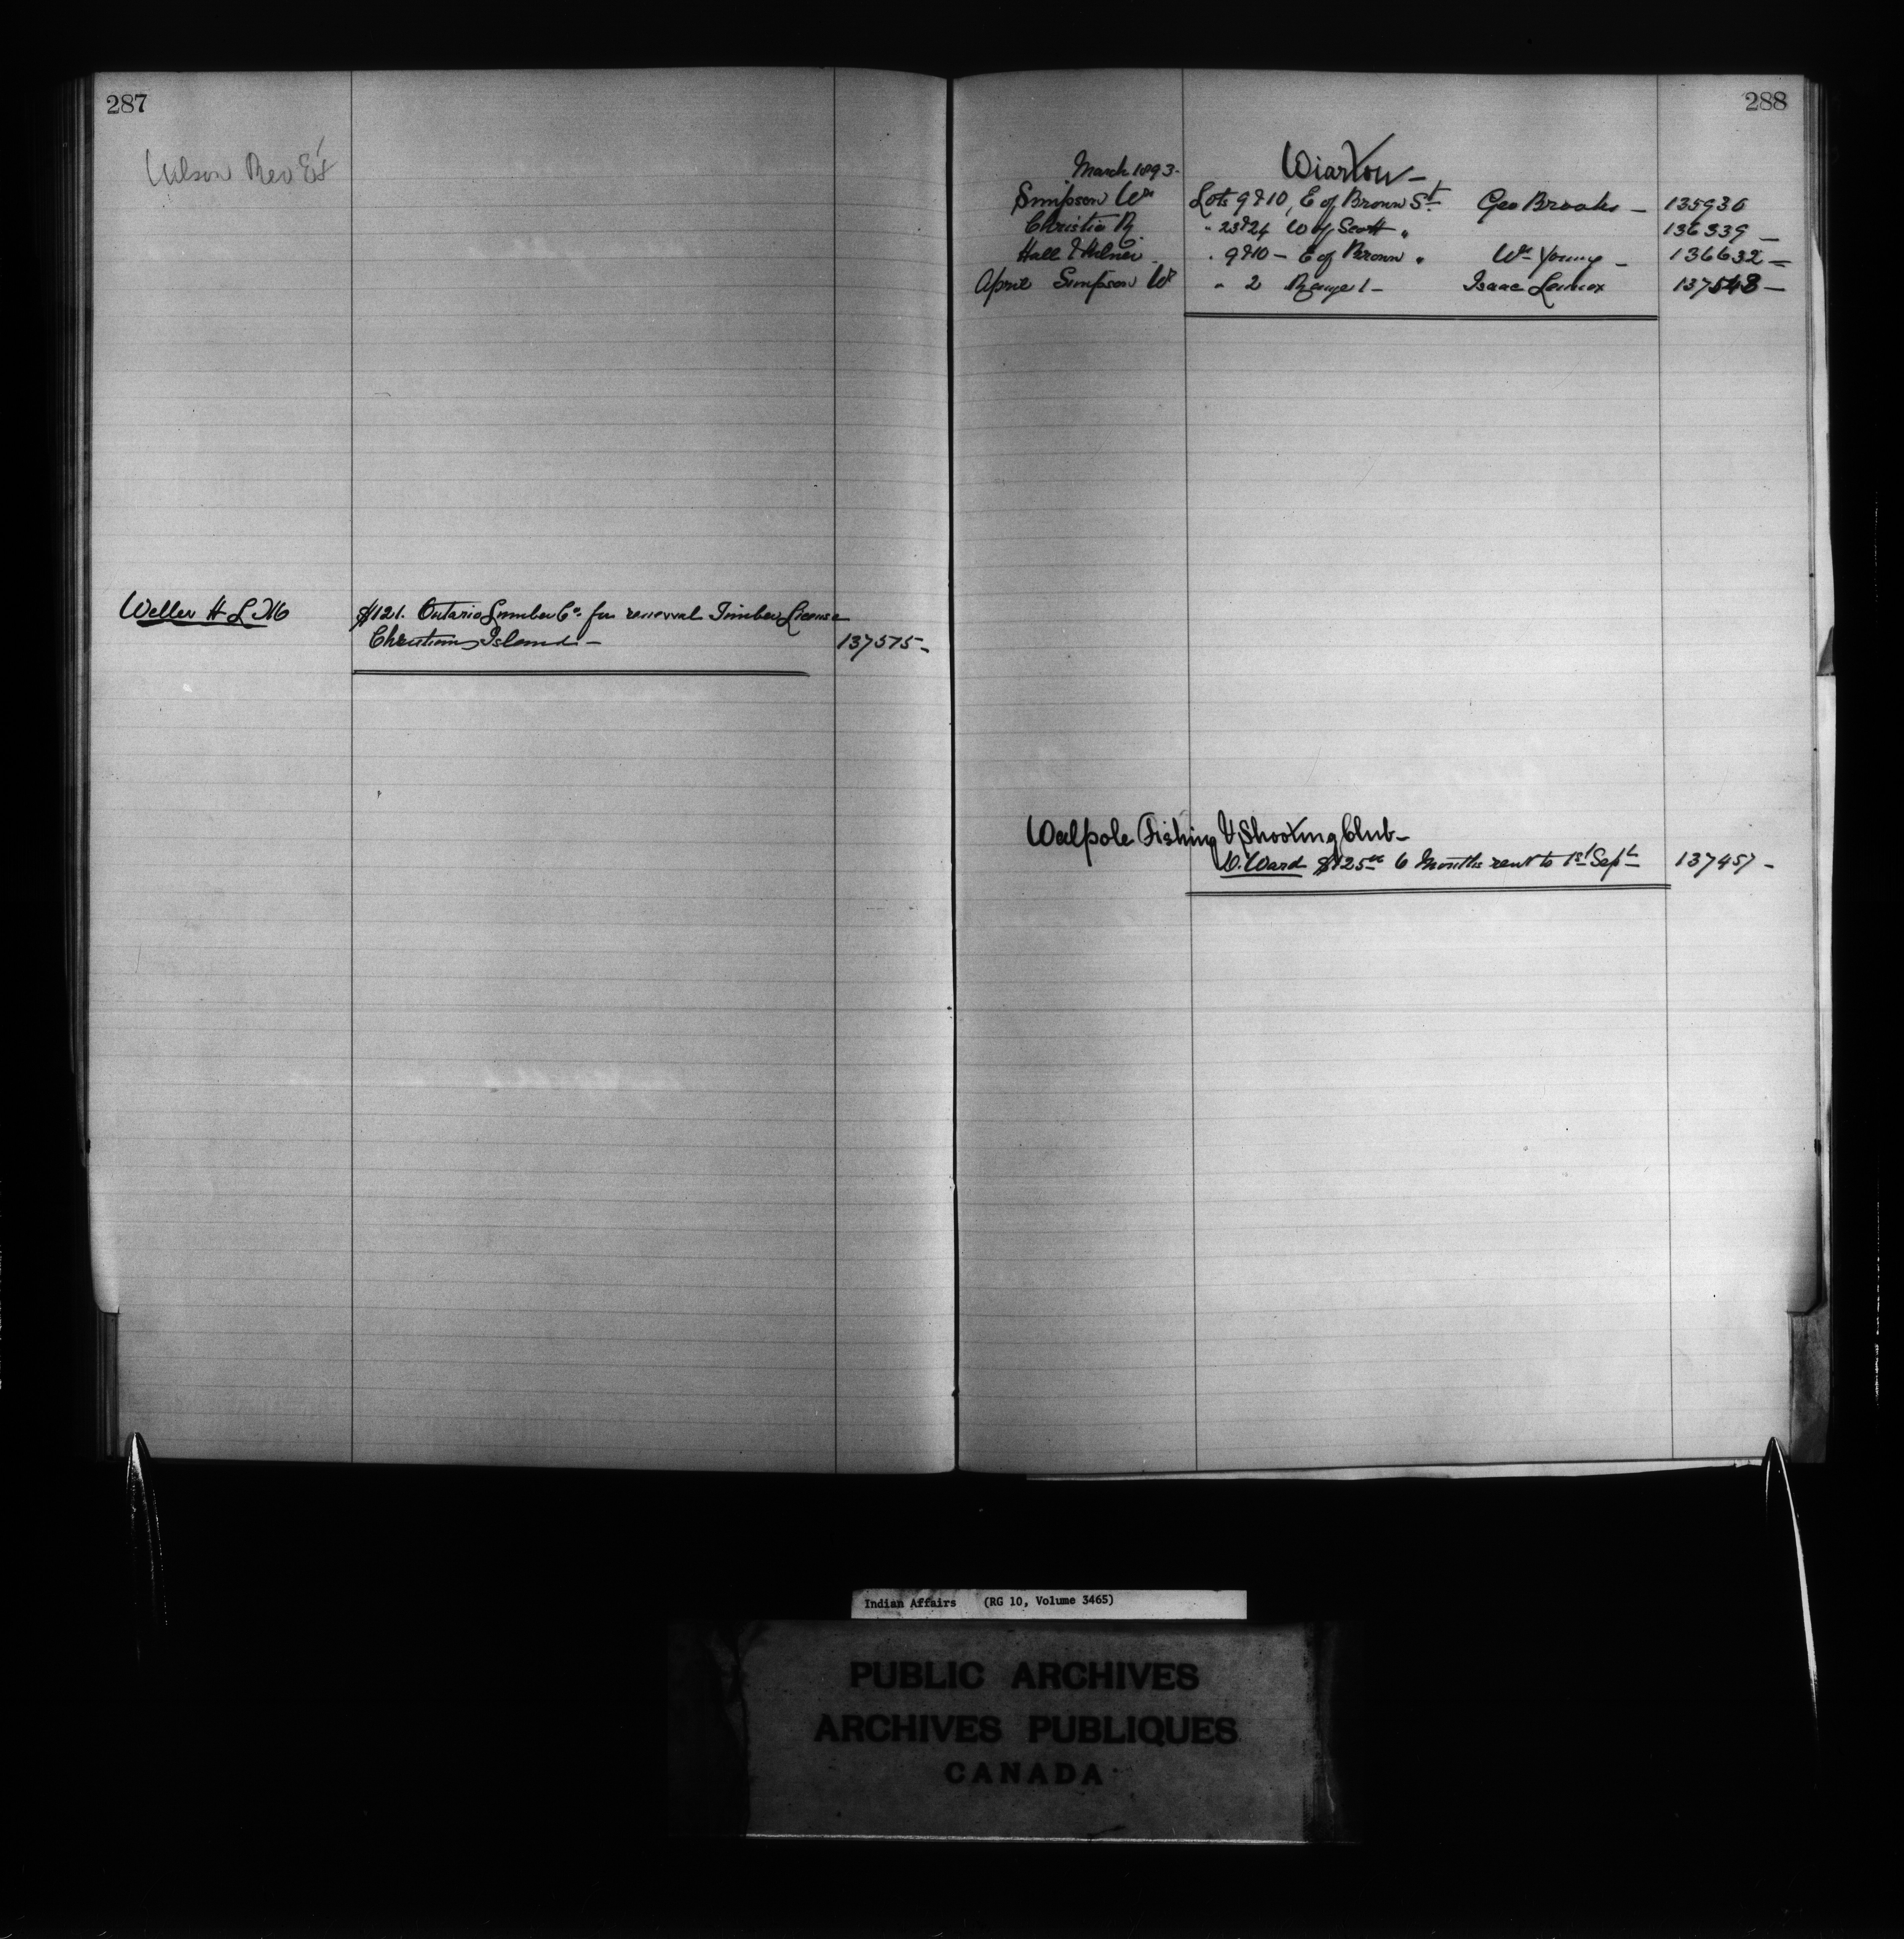 287
Wilson Rev E.
Weller H L
$121. Ontario Lumber Co. for renewal Timber License
Christian Island — 137575 —
288
March 1893 - Wiarton —
Simpson Wm Lots 9 & 10, E of Brown St. Geo Brooks — 135930
Christie R. " 23 & 24 W of Scott " 136339 —
Hall & Milner — " 9 & 10 — E of Brown " Wm Young — 136632 —
April Simpson Wm " 2 Range 1 — Isaac Lennox 137548 —
Walpole Fishing & Shooting Club —
W. Ward $125.00 6 Months rent to 1st Sept 137457 —
Indian Affairs (RG 10, Volume 3465)
PUBLIC ARCHIVES
ARCHIVES PUBLIQUES
CANADA